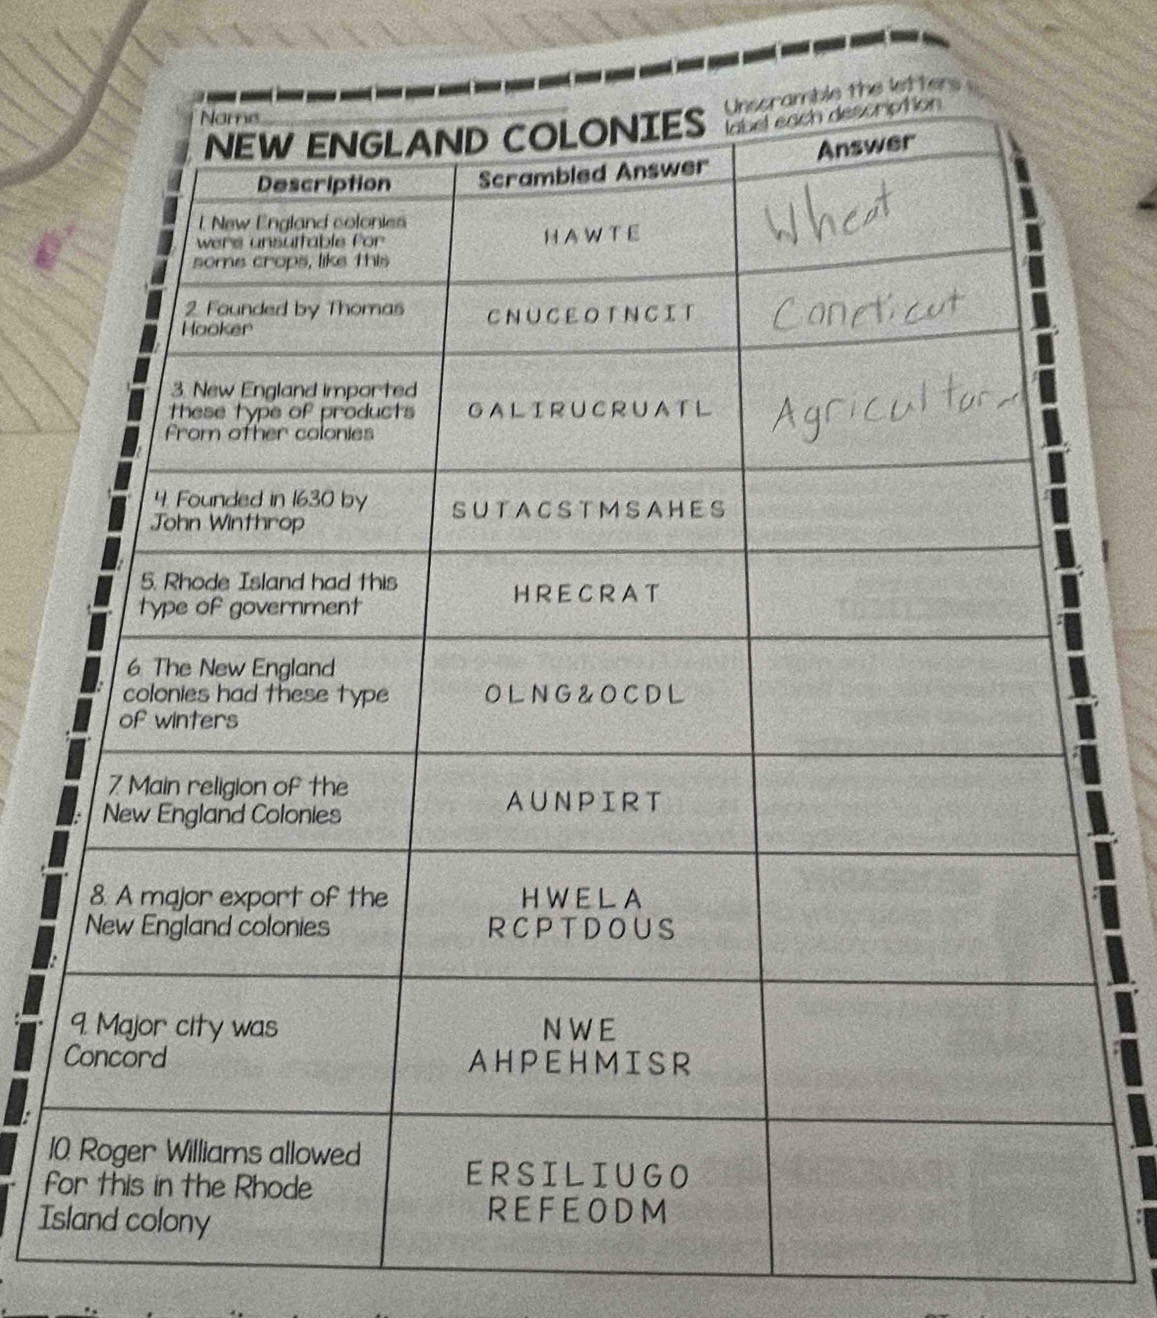 Name
NEW ENGLAND COLONIES
Unscramble the letters
label each description
Description Scrambled Answer Answer
1. New England colonies
were unsuitable for
some crops, like this
HAWTE
Wheat
2. Founded by Thomas
Hooker
CNUCEOTNCIT
Coneticut
3. New England imported
these type of products
from other colonies
GALIRUCRUATL
4. Founded in 1630 by
John Winthrop
SUTACSTMSAHES
5. Rhode Island had this
type of government
HRECRAT
6. The New England
colonies had these type
of winters
OLNG&OCDL
7. Main religion of the
New England Colonies
AUNPIRT
8. A major export of the
New England colonies
HWELA
RCPTDOUS
9. Major city was
Concord
NWE
AHPEHMISR
10. Roger Williams allowed
for this in the Rhode
Island colony
ERSILIUGO
REFEODM